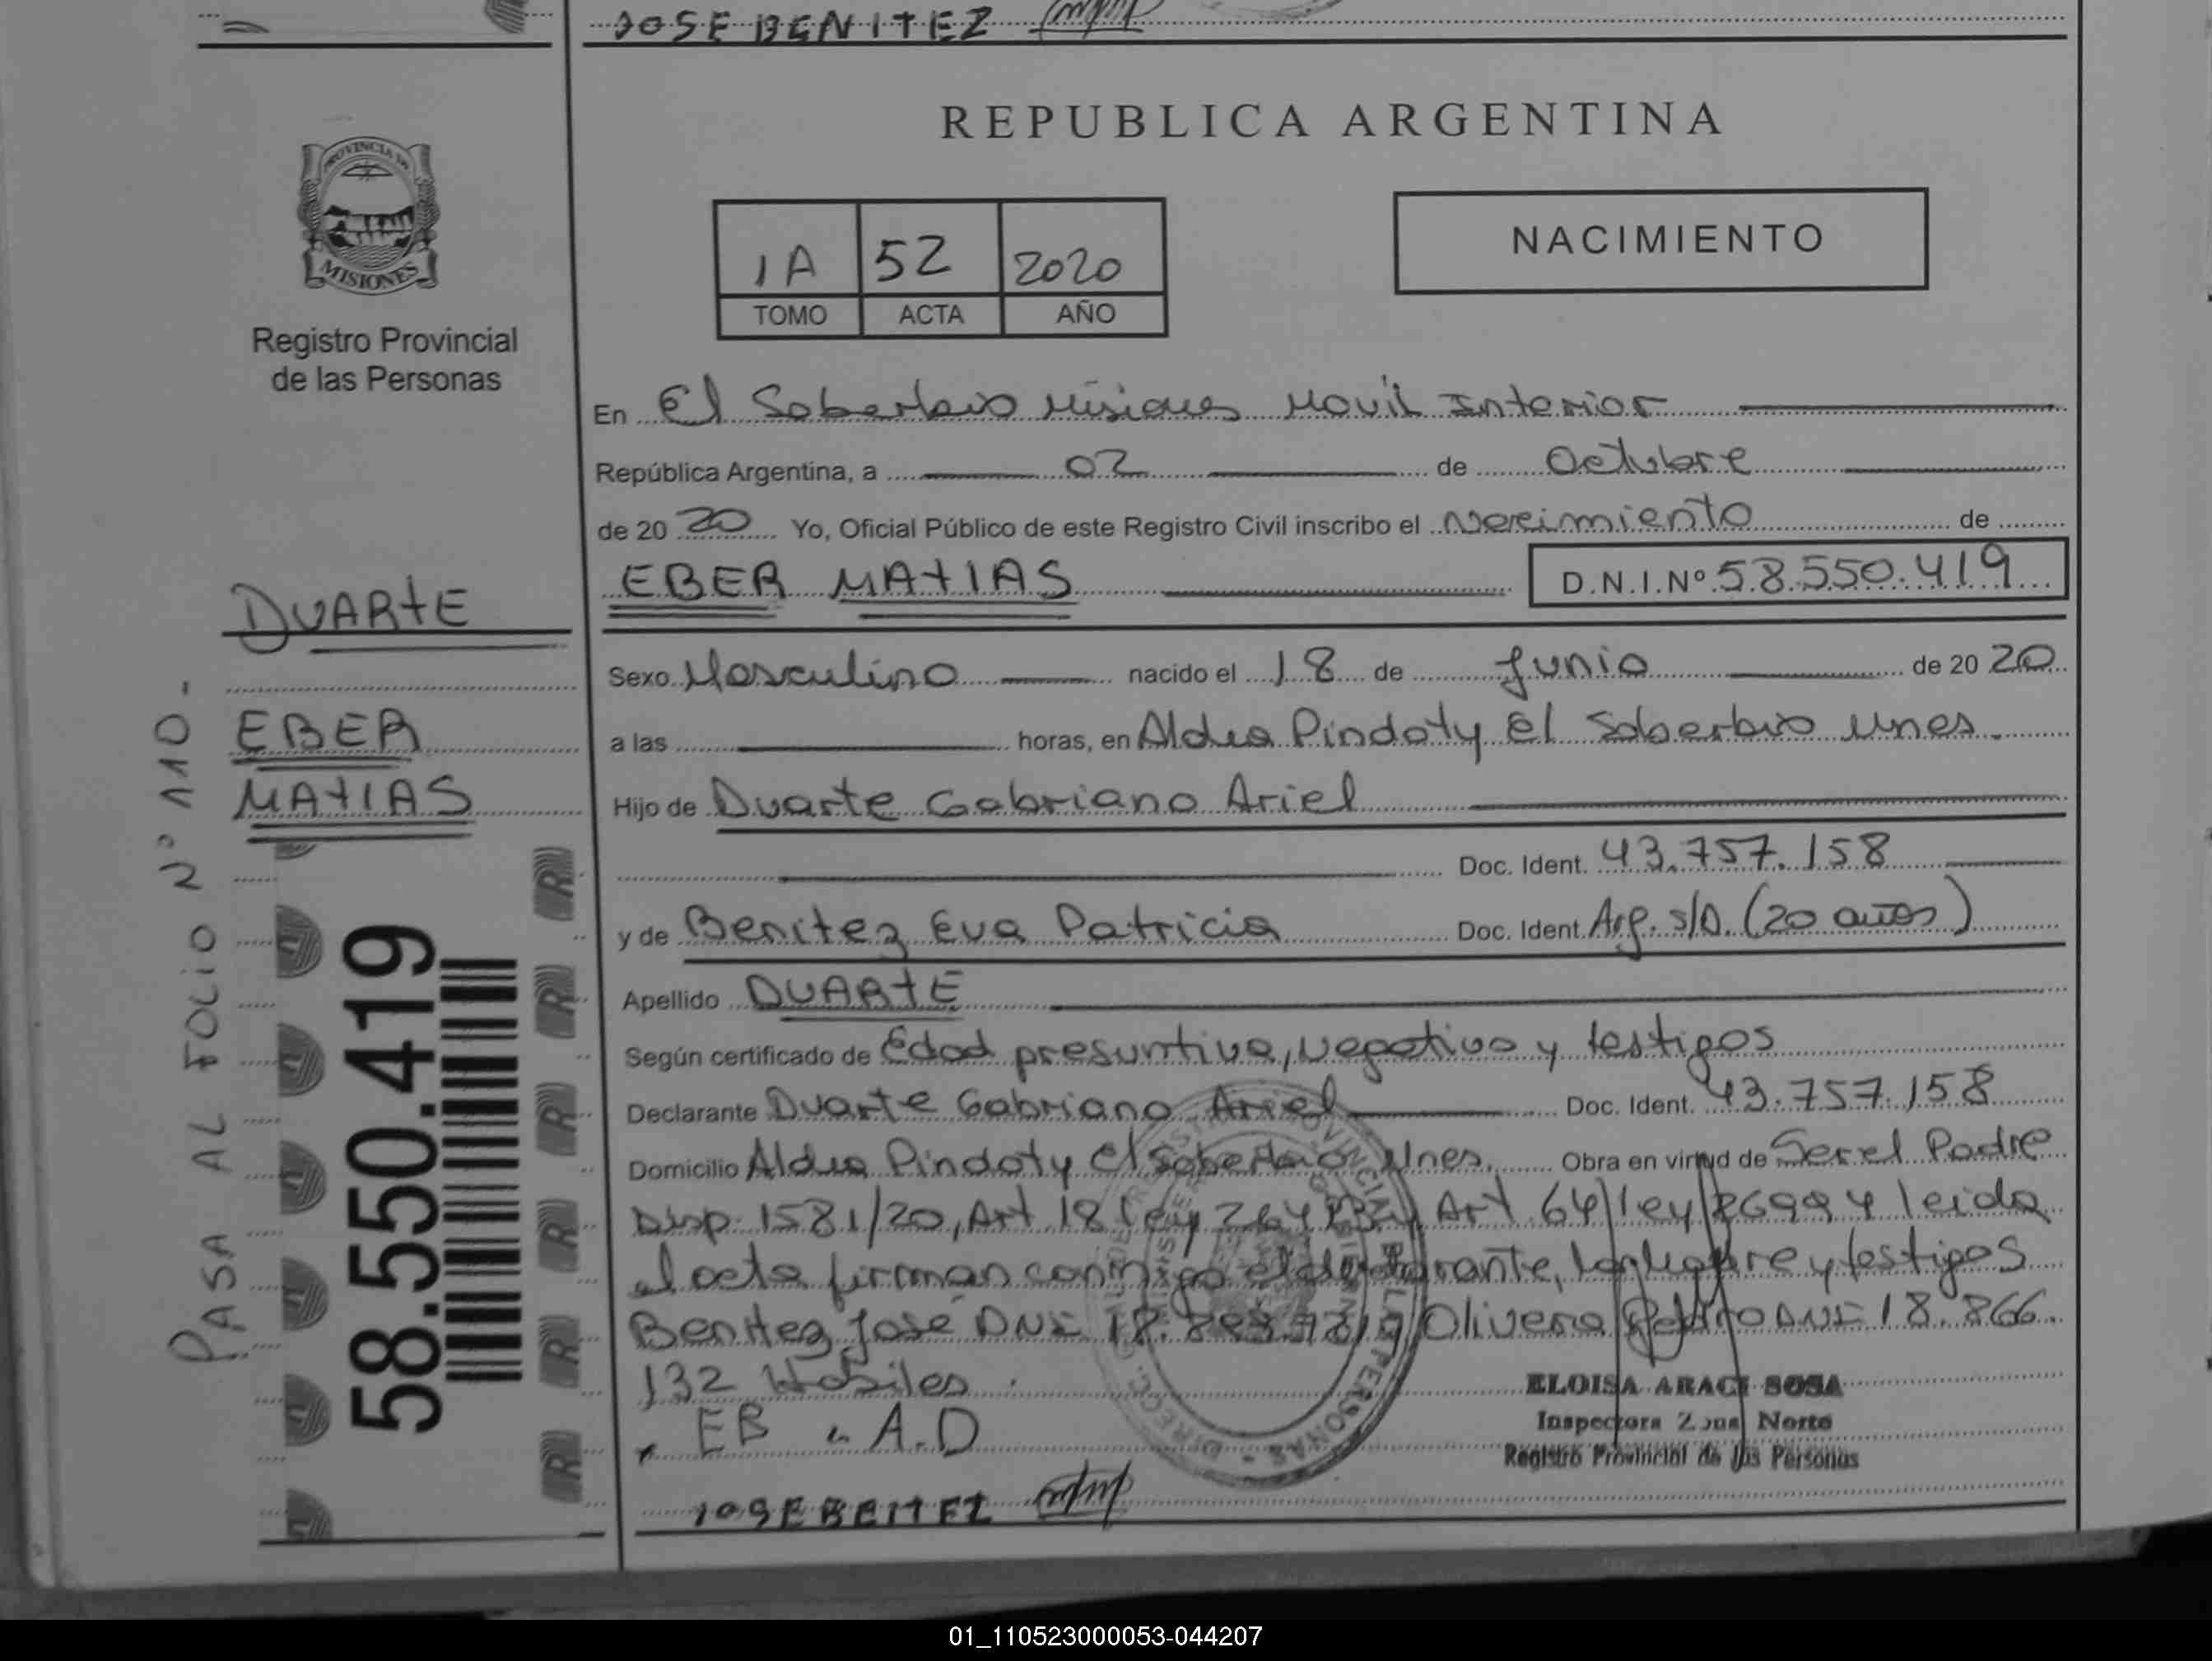 JOSE BENITEZ
REPUBLICA ARGENTINA
PROVINCIA DE
MISIONES
Registro Provincial
de las Personas
1A 52 2020
TOMO ACTA AÑO
NACIMIENTO
En El Soberbio Misiones Movil Interior
República Argentina, a 02 de Octubre
de 20 20 Yo, Oficial Público de este Registro Civil inscribo el Nacimiento de
EBER MATIAS D.N.I.Nº 58.550.419
DUARTE
EBER
MATIAS
PASA AL FOLIO Nº 110-
58.550.419
Sexo Masculino nacido el 18 de Junio de 20 20
a las horas, en Aldea Pindoty El Soberbio Mnes.
Hijo de Duarte Gabriano Ariel
Doc. Ident. 43.757.158
y de Benitez Eva Patricia Doc. Ident. Arg. S/D. (20 años)
Apellido DUARTE
Según certificado de Edad presuntiva, Negativo y testigos
Declarante Duarte Gabriano Ariel Doc. Ident. 43.757.158
Domicilio Aldea Pindoty El Soberbio Mnes. Obra en virtud de Ser el Padre
Disp. 1581/20, Art 18 Ley Art 64 ley 26994 leida
el acta firman conmigo el declarante, la madre y testigos
Benitez José DNI Olivera Pedro DNI 18.866.
132 Habiles.
EB A.D
JOSE BEITEZ
ELOISA ARACI SOSA
Inspectora Zona Norte
Registro Provincial de las Personas
01_110523000053-044207